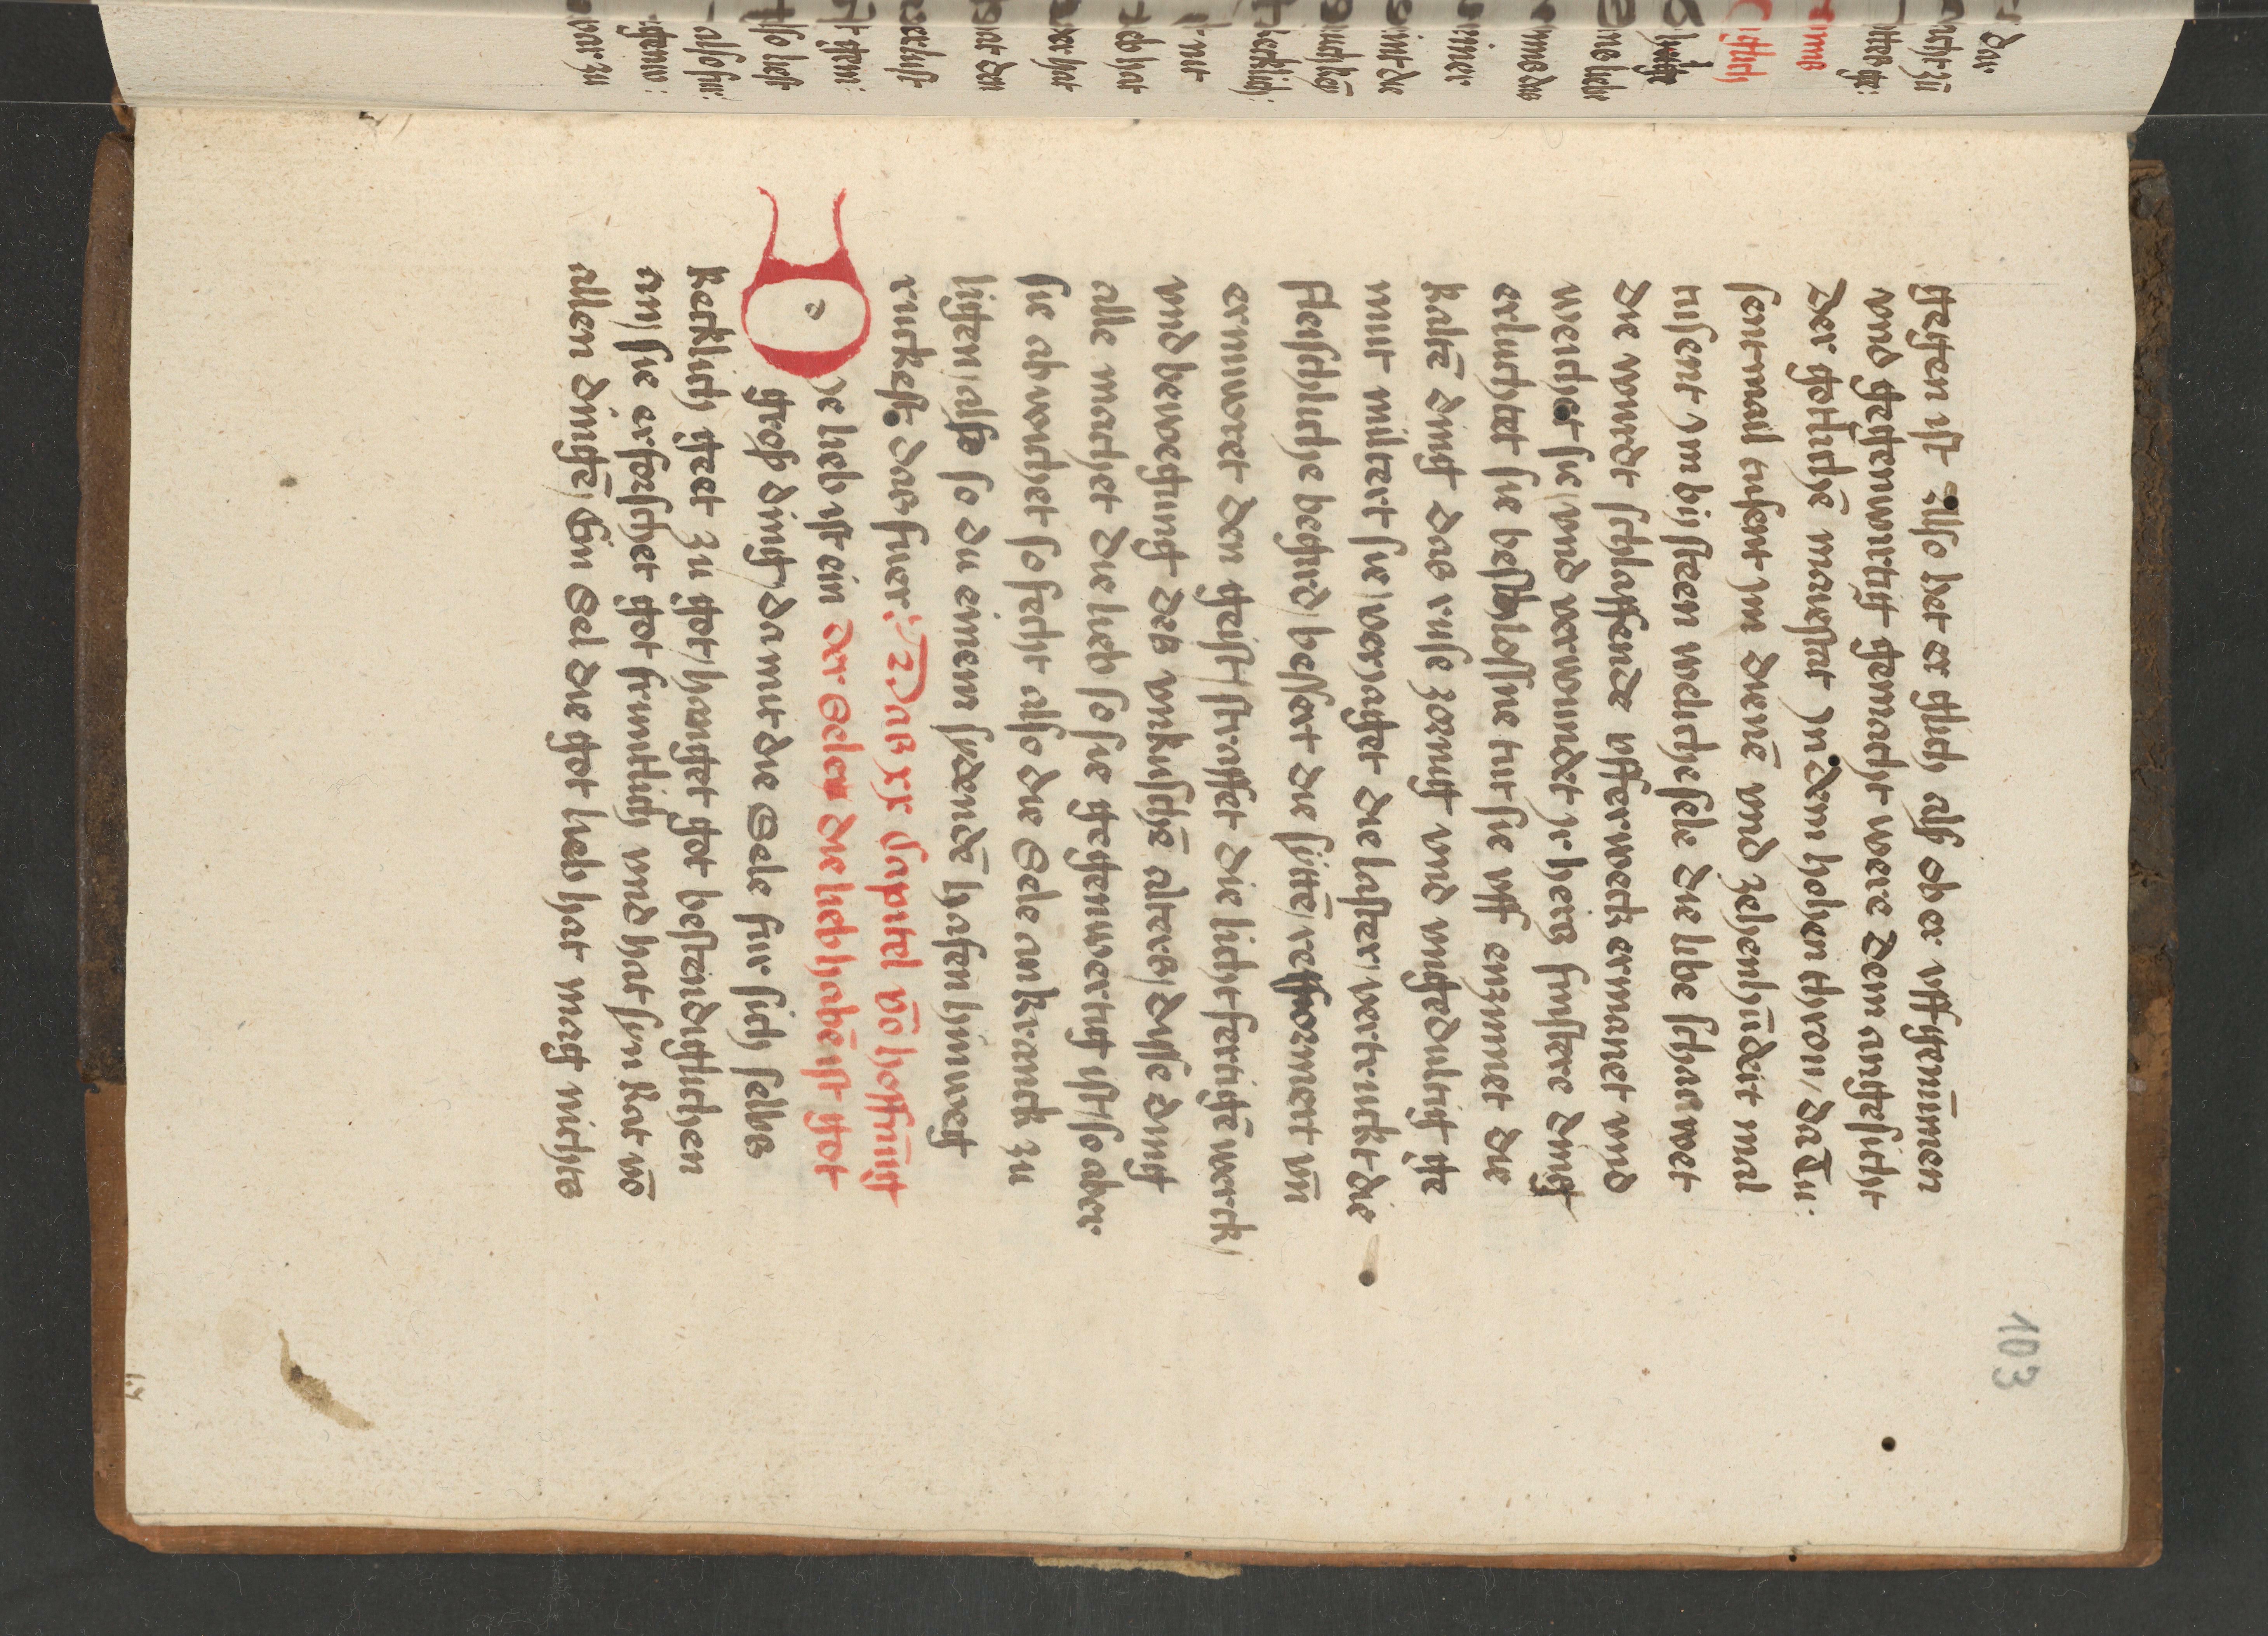 103
gegen ist Also het er glich als ob er uffgenūmen
vnd gegenwurtig gemacht were dem angesicht
Der gotlichē maiestat Jn dem hohen thron / da Tu
sentmail tusent ym dienē vnd zehenhūdert mal
tusent ym bisteen welche sele die libe schauwet
Die wurdt schlaffende ufferweck ermanet vnd
weichet sie / vnd verwundet ir hertz finstere ding
erluchtet sie beschlossene tut sie uff enzunet die
kaltē ding das ruse zornig vnd vngedultig ge
mut miltert sie / veriaget die laster / vertruckt die
fleischliche begird / bessert die sittē / reformert vn̄
ernuwet den geist / straffet die lichtfertigē werck /
vnd bewegung des unkuschē alters / disse ding
alle machet die lieb so sie gegenwertig ist / so aber
sie abwichet so fecht also die Sele an kranck zu
ligen / also so du einem sydendē hafen hinweg
ruckest. das fuer :~ Das xx Capitel vō hoffnūg
der Selen die lieb habē ist got
De lieb ist ein
groß ding / damit die Sele fur sich selbs
kecklich geet zu got / hanget got bestendiglichen
an / sie erforschet got fruntlich vnd hat syn Rat vō
allen dingē / Ein Sel die got lieb hat mag nichts